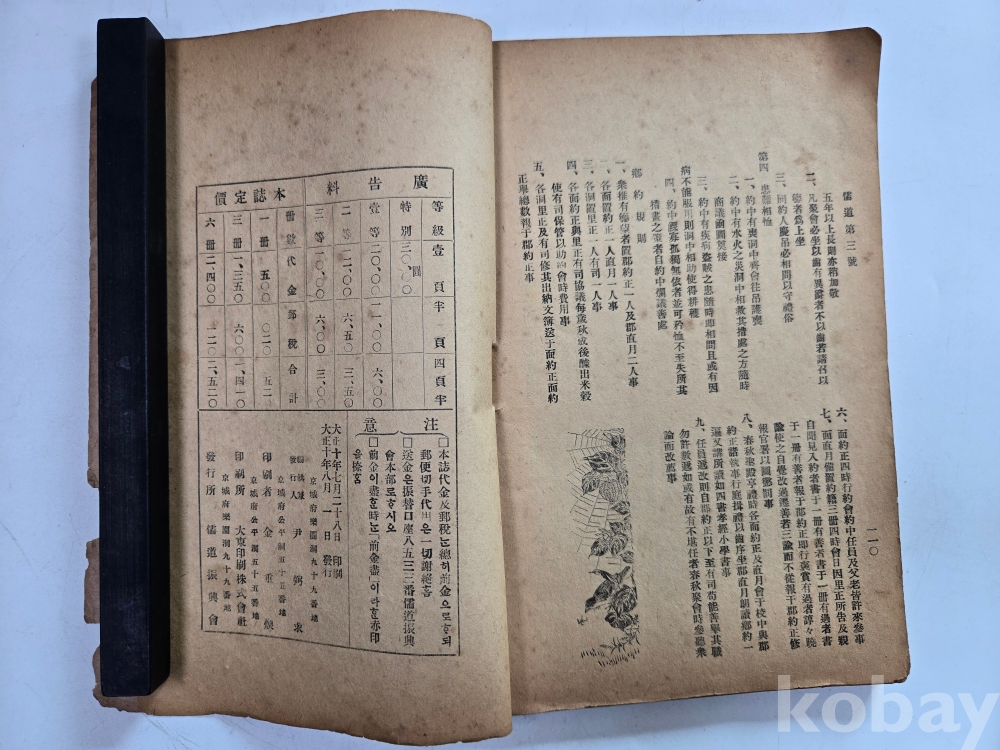 儒道第三號
一一〇
五年以上長則亦稍加敬
一、凡聚會必坐以齒有異爵者不以齒若請召以
德者爲上坐
三、同約人慶吊必相問以守禮俗
第四 患難相恤
一、約中有喪洞中齊會往吊護喪
二、約中有水火之災洞中相救其措處之方隨時
商議爾聞
三、約中有疾病盜賊之患隨時即相問且或有因
病不能服用則洞中相助使得耕種
四、約中鰥寡孤獨無依者並可矜恤不至失所其
措畫之策者自約中爛議善處
鄕約規則
一、衆推有德望者置郡約正一人及郡直月二人事
二、各面置約正一人直月一人事
三、各洞置里正一人有司一人事
四、各面約正與里正有司協議每歲秋或後醵出米穀
使有司保管以助約會時費用事
五、各洞里正及有司修其出納文簿送于面約正面約
正擧總數報于郡約正事
六、面約正四時行約會約中任員及父老皆許來參事
七、面直月備置約籍三冊四時會日因里正所告及親
自聞見入約者書于一冊有善者書于一冊有過者書
于一冊有善者報于郡約正即行褒賞有過者諄々曉
諭使之自覺改過遷善若三諭而不從報于郡約正修
報官署以圖懲罰事
八、春秋聖殿享禮時各面約正及直月會于校中與郡
約正諸執事行庭揖禮以齒序坐郡直月朗讀鄕約一
遍又講所讀如四書孝經小學書事
九、任員遞改則自郡約正以下至有司苟能善擧其職
勿許數遞如或有故有不堪任者春秋聚會時參聽衆
論而改薦事
廣告料
等級 壹頁 半頁 四半頁
特別 三〇、〇〇圓
壹等 二〇、〇〇 一一、〇〇 六、〇〇
二等 一二、〇〇 六、五〇 三、五〇
三等 一〇、〇〇 六、〇〇 三、〇〇
本誌定價
冊數 代金 郵稅 合計
一冊 、五〇〇 、〇二〇 、五二〇
三冊 一、三五〇 、〇六〇 一、四一〇
六冊 二、四〇〇 、一二〇 二、五二〇
注意
□本誌代金及郵稅는總히前金으로하되
郵便切手代用은一切謝絕홈
□送金은振替口座八五三三番儒道振興
會本部로하시오
□前金이盡한時는「前金盡」이라한赤印
을捺홈
大正十年七月二十八日 印刷
大正十年八月一日 發行
京城府樂園洞九十九番地
發行人 尹弼求
京城府公平洞五十五番地
印刷者 金重煥
京城府公平洞五十五番地
印刷所 大東印刷株式會社
京城府樂園洞九十九番地
發行所 儒道振興會
kobay